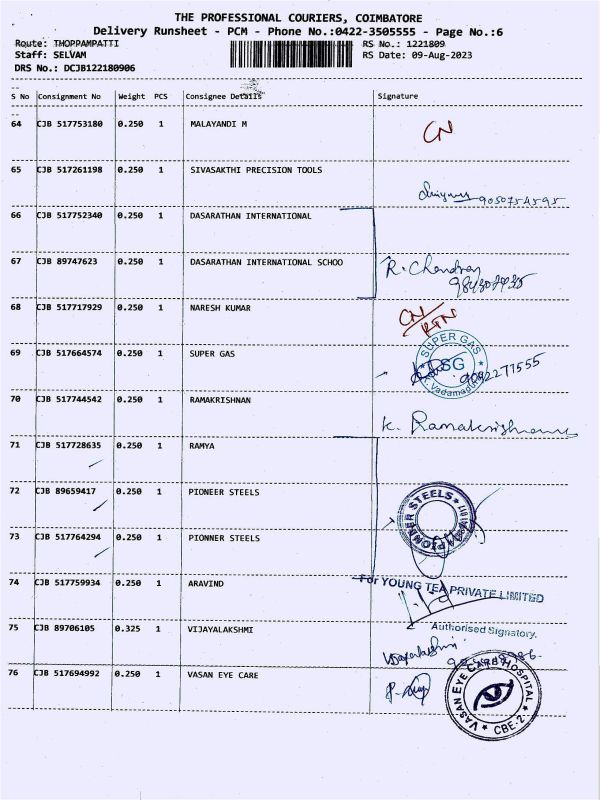 THE PROFESSIONAL COURIERS, COIMBATORE
Delivery Runsheet - PCM - Phone No.:0422-3505555 - Page No.:6
Route: THOPPAMPATTI RS No.: 1221809
Staff: SELVAM RS Date: 09-Aug-2023
DRS No.: DCJB122180906
S No Consignment No Weight PCS Consignee Details Signature
64 CJB 517753180 0.250 1 MALAYANDI M CN
65 CJB 517261198 0.250 1 SIVASAKTHI PRECISION TOOLS
9050754595
66 CJB 517752340 0.250 1 DASARATHAN INTERNATIONAL
67 CJB 89747623 0.250 1 DASARATHAN INTERNATIONAL SCHOO R. Chandran
68 CJB 517717929 0.250 1 NARESH KUMAR CN/RTN
69 CJB 517664574 0.250 1 SUPER GAS SUPER GAS SG Vadamadurai 9092271555
70 CJB 517744542 0.250 1 RAMAKRISHNAN K. Ramakrishnan
71 CJB 517728635 0.250 1 RAMYA
72 CJB 89659417 0.250 1 PIONEER STEELS
73 CJB 517764294 0.250 1 PIONNER STEELS PIONNER STEELS
74 CJB 517759934 0.250 1 ARAVIND For YOUNG TEA PRIVATE LIMITED
Authorised Signatory.
75 CJB 89706105 0.325 1 VIJAYALAKSHMI
76 CJB 517694992 0.250 1 VASAN EYE CARE VASAN EYE CARE HOSPITAL CBE-2